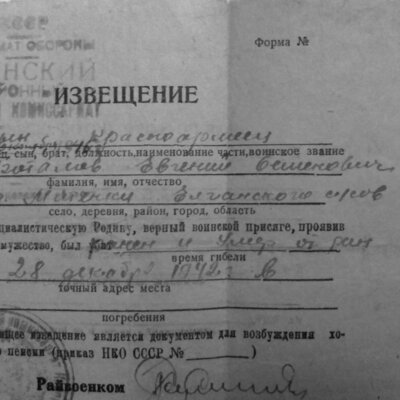 СССР
МАТ ОБОРОНЫ
НСКИЙ
КОМИССАРИАТ
Форма №
ИЗВЕЩЕНИЕ
Красноармеец
сын, брат, должность, наименование части, воинское звание
Евгений Семенович
фамилия, имя, отчество
село, деревня, район, город, область
циалистическую Родину, верный воинской присяге, проявив
мужество, был ранен и умер от ран
время гибели
28 декабря 1942 г в
точный адрес места
погребения
ящее извещение является документом для возбуждения хо-
о пенсии (приказ НКО СССР № )
Райвоенком